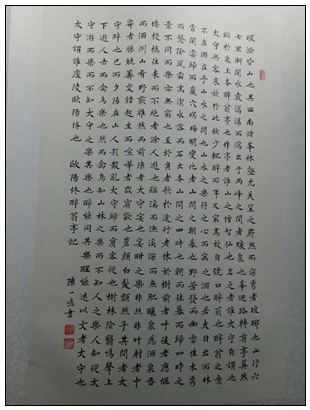 環滁皆山也其西南諸峯林壑尤美望之蔚然而深秀者瑯琊也山行六
七里漸聞水聲潺潺而瀉出于兩峯之間者釀泉也峯迴路轉有亭翼然
臨於泉上者醉翁亭也作亭者誰山之僧智仙也名之者誰太守自謂也
太守與客來飲於此飲少輒醉而年又最高故自號曰醉翁也醉翁之意
不在酒在乎山水之間也山水之樂得之心而寓之酒也若夫日出而林
霏開雲歸而巖穴暝晦明變化者山間之朝暮也野芳發而幽香佳木秀
而繁陰風霜高潔水落而石出者山間之四時也朝而往暮而歸四時之
景不同而樂亦無窮也至於負者歌於途行者休於樹前者呼後者應傴
僂提攜往來而不絕者滁人遊也臨溪而漁溪深而魚肥釀泉為酒泉香
而酒洌山肴野蔌雜然而前陳者太守宴也宴酣之樂非絲非竹射者中
弈者勝觥籌交錯起坐而諠譁者衆賓歡也蒼顏白髮頹然乎其間者太
守醉也已而夕陽在山人影散亂太守歸而賓客從也樹林陰翳鳴聲上
下遊人去而禽鳥樂也然而禽鳥知山林之樂而不知人之樂人知從太
守遊而樂而不知太守之樂其樂也醉能同其樂醒能述以文者太守也
太守謂誰廬陵歐陽脩也 歐陽脩醉翁亭記
陳一鳴書